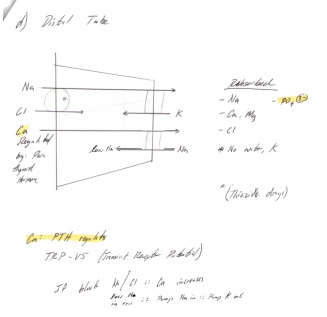 d) Distal Tube
Na
Cl
K
Ca
Regulated
by: Para
thyroid
hormone
low Na
Na
Reabsorbed
- Na
- PO4
- Ca, Mg
- Cl
* No water, K
*(Thiazide drugs)
Ca: PTH regulates
TRP-V5 (Transient Receptor Potential)
If block Na/Cl :: Ca increases
low Na in cell :: Pump Na in :: Pump K out